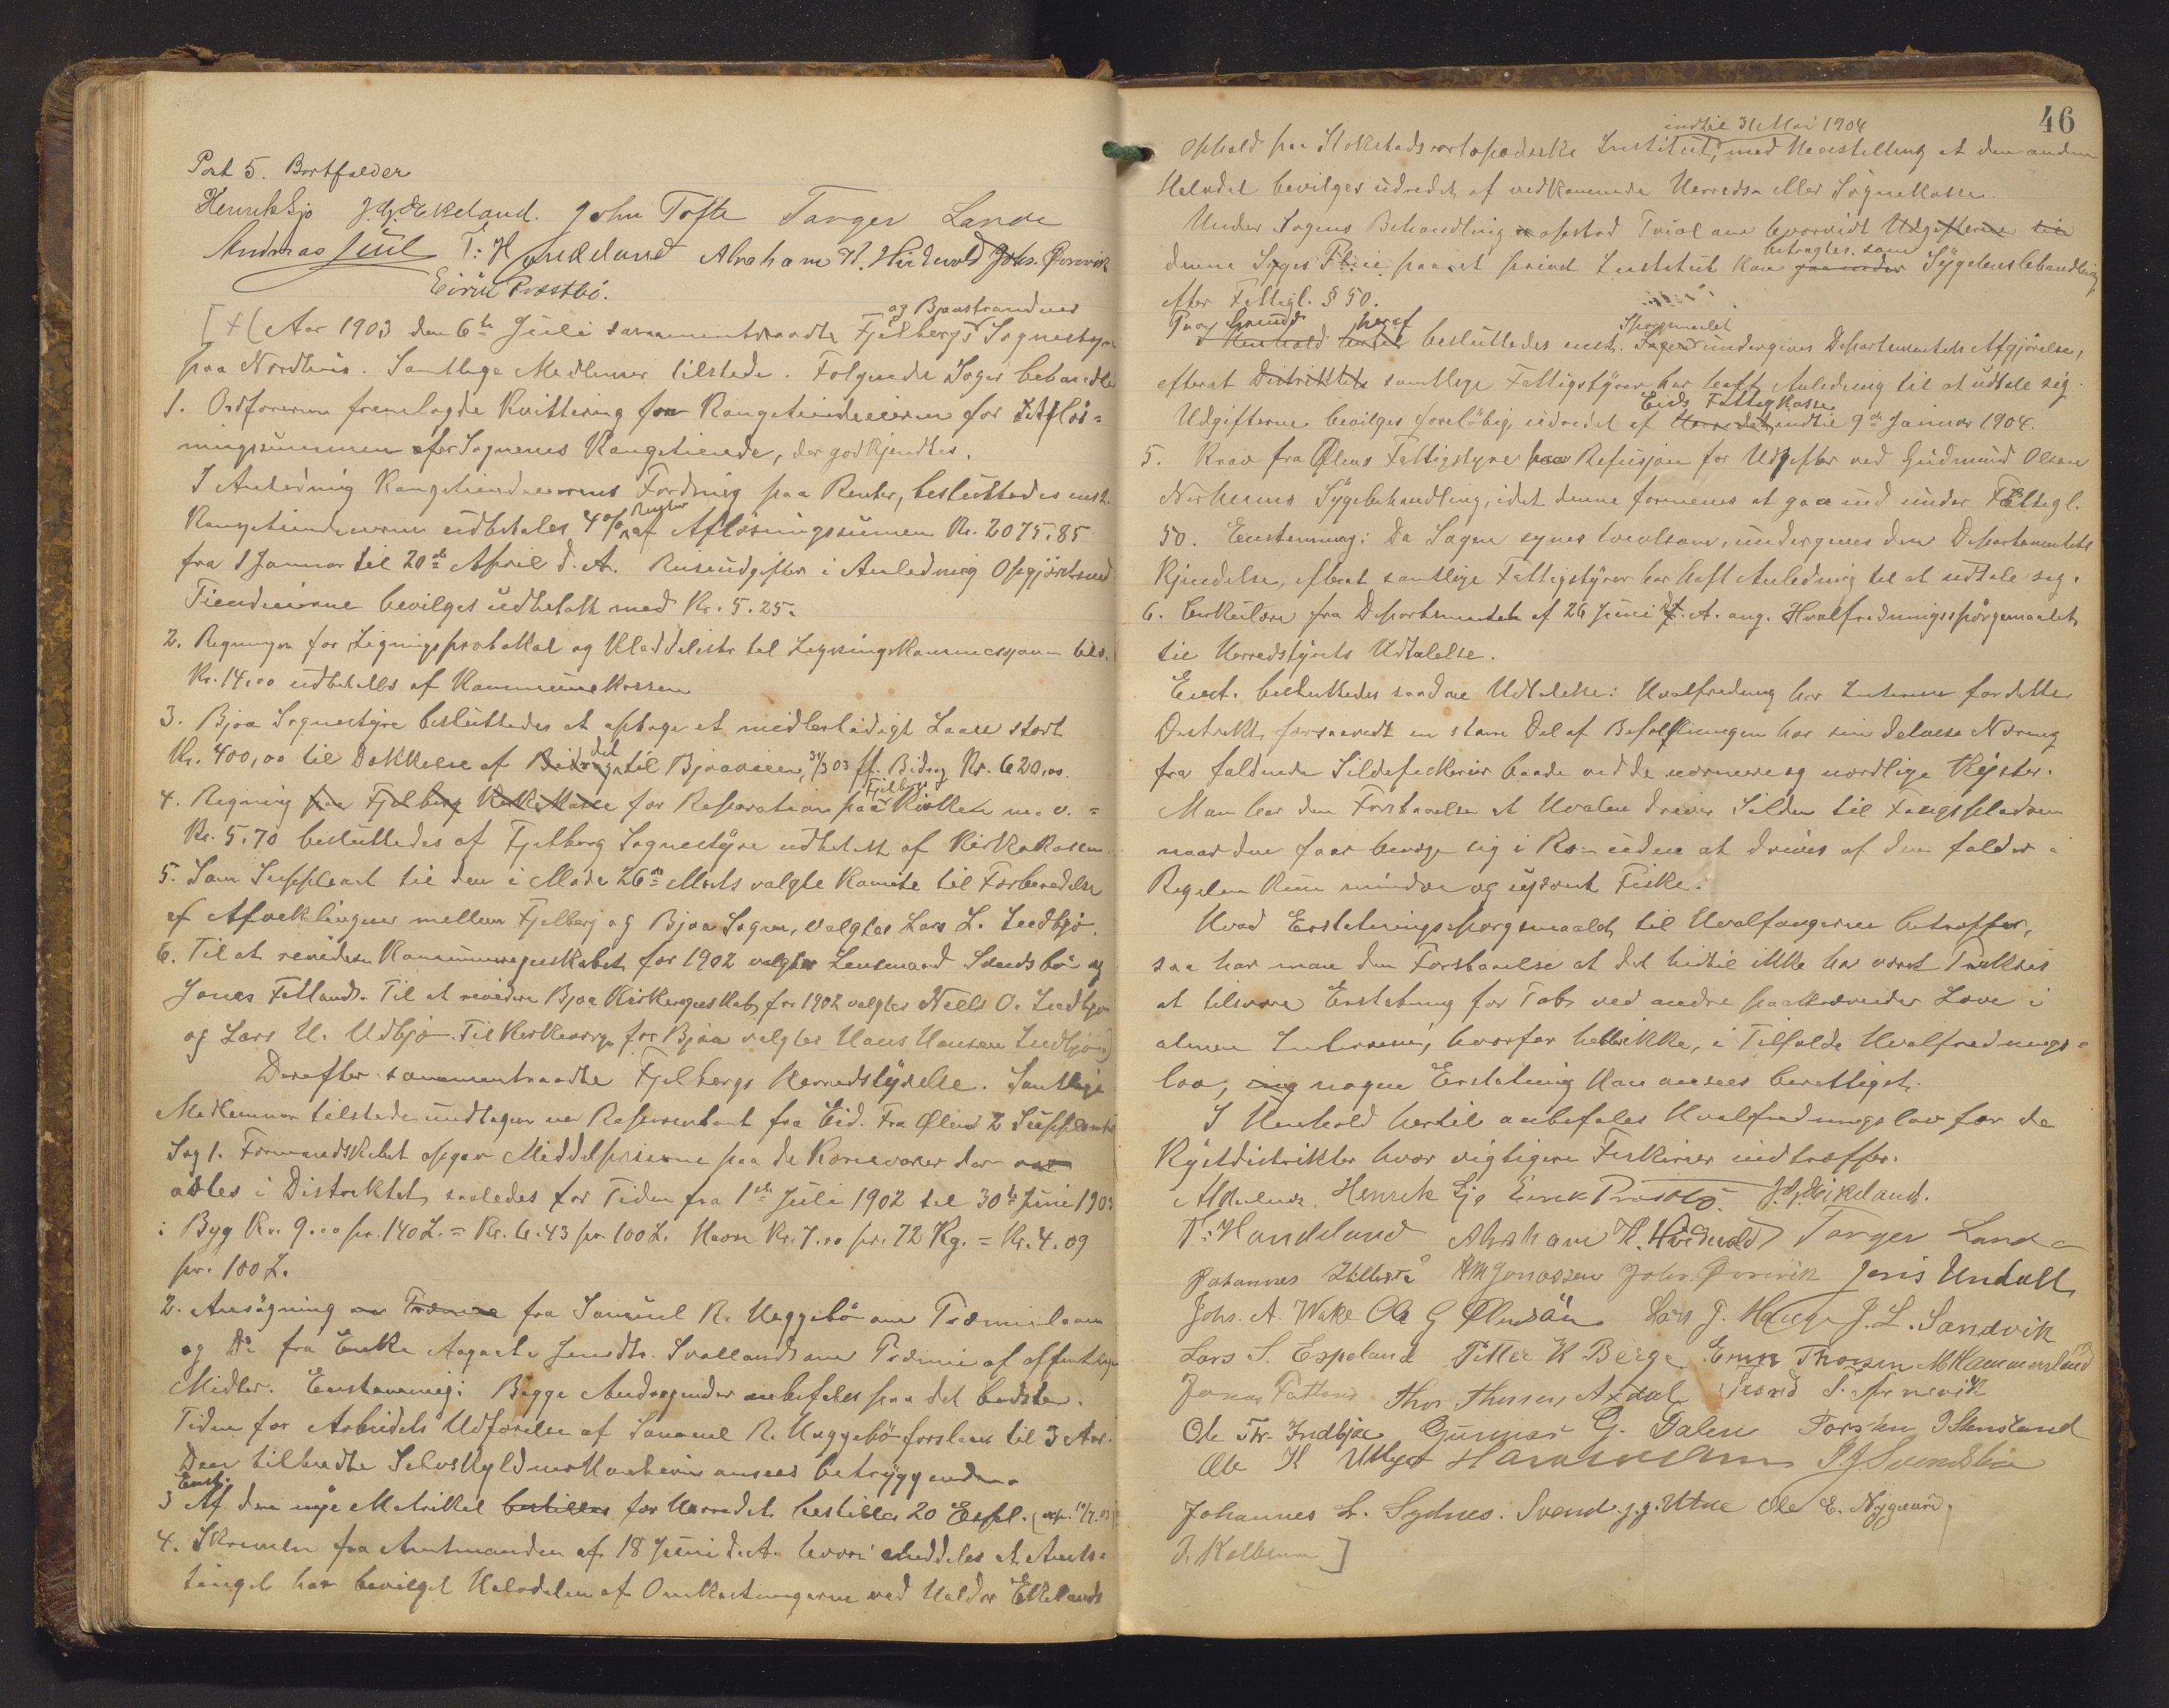 Post 5. Bortfalder
Henrik Ejo J. G. Ekeland. John Tofte Targer Lande
Andreas Juul T: Handeland Abraham H. Hindevold Johs. Örnvik
Eirik Præstbö.
og Bjoastrandenes
[+ (Aar 1903 den 6te Juli sammentraadte Fjelbergs Sognestyre
paa Nordheim. Samtlige Medlemer tilstede. Følgende Sager behandles
1. Ordføreren fremlagde Kvittering fra Kongetiendeeieren for Afløs=
ningssummen for Sognenes Kongetiende, der godkjendtes.
I Anledning Kongetiendeeierens Fordring paa Renter, besluttedes enst.
Renter
Kongetiendeeieren udbetales 4% af Afløsningssumen Kr. 2075,85
fra 1 Januar til 20de April d. A. Reiseudgifter i Anledning Opgjöret med
Tiendeeierne bevilges udbetalt med Kr. 5.25.
2. Regninger for Ligningsprotokol og Kladdelister til Ligningskommissionen tils.
Kr. 14,00 udbetales af Kommunekassen
3. Bjoa Sognestyre besluttedes at optage et midlertidigt Laan stort
det
Kr. 400,00 til Dækkelse af Bidrag til Bjoaveien, 31/3 03 ff. Bidrag Kr. 620,00.
Fjelberg
4. Regning paa Fjelberg Kirkekasse for Reparation paa Kirken m. v. =
Kr. 5,70 besluttedes af Fjelberg Sognestyre udbetalt af Kirkekassen.
5. Som Suppleant til den i Møde 26de Marts valgte Komite til Forberedelse
af Afviklingen mellem Fjelberg og Bjoa Sogne, valgtes Lars L. Indbjo.
6. Til at revidere Kommuneregnskabet for 1902 valgtes Lensmand Svendsbö og
Jonas Fatland. Til at revidere Bjoa Kirkeregnskab for 1902 valgtes Neels O. Indbjoa
og Lars H. Udbjo. Til Kirkeværge for Bjoa valgtes Hans Hansen Indbjoa)
Derefter sammentraadte Fjelbergs Herredstyrelse. Samtlige
Medlemmer tilstede undtagen en Repræsentant fra Eid. Fra Ølen 2 Suppleanter
Sag 1. Formandskabet opgav Middelpriserne paa de Kornvarer der
avles i Distriktet, saaledes for Tiden fra 1ste Juli 1902 til 30te Juni 1903
: Byg Kr. 9.00 pr. 140 L. = Kr. 6.43 pr. 100 L. Havre Kr. 7.00 pr. 72 Kg. = Kr. 4.09
pr. 100 L.
2. Ansögning fra Samuel R. Haggebö om Præmielaan
og Do fra Enke Aagaate Jensdtr. Svalland om Præmie af offentlige
Midler. Enstemmig: Begge Andragender anbefales paa det bedste.
Tiden for Arbeidets Udførelse af Samuel R. Haggebö forslaaes til 3 Aar.
Den tilbudte Selvskyldnerkaution ansees betryggende.
Enst.
3 Af den nye Matrikel bestilles for Herredet bestilles 20 Expl. (exp. 10/7.03)
4. Skrivelse fra Amtmanden af 18 Juni d. A. hvori meddeles at Amts=
tinget har bevilget Halvdelen af Omkostningerne ved Haldor Ekelands
46
indtil 31 Mai 1904
Ophold paa Stokstads ortopædiske Institut, med Henstilling at den anden
Halvdel bevilges udredet af vedkommende Herreds- eller Sognekasse.
Under Sagens Behandling opstod Tvivl om hvorvidt Udgifterne til
betragtes som
denne Syges Pleie paa et privat Institut kan Sygehusbehandling
efter Fattigl. § 50.
Paa Grund heraf Spörgsmaalet
I Henhold hertil besluttedes enst. Sagen undergives Departementets Afgjörelse,
efterat Distriktets samtlige Fattigstyrer har havt Anledning til at udtale sig.
Eids Fattigkasse
Udgifterne bevilges foreløbig udredet af Herredet indtil 9de Januar 1904.
5. Krav fra Ølens Fattigstyre paa Refusjon for Udgifter ved Gudmund Olsen
Nerheims Sygebehandling, idet denne formenes at gaa ind under Fattigl.
50. Enstemmig: Da Sagen synes tvivlsom, undergives den Departementets
Kjendelse, efterat samtlige Fattigstyrer har haft Anledning til at udtale sig.
6. Cirkulære fra Departementet af 26 Juni d. A. ang. Hvalfredningsspørgsmaalet,
til Herredstyrets Udtalelse.
Enst. besluttedes saadan Udtalelse: Hvalfredning har Interesse for dette
Distrikt, forsaavidt en stor Del af Befolkningen har sin delvise Næring
fra faldende Sildefiskerier baade ved de nærmere og nordlige Kyster.
Man har den Forstaaelse at Hvalen driver Silden til Fangspladsen
naar den faar bevæge sig i Ro – uden at drives af den falder i
Regelen kun mindre og ujævnt Fiske.
Hvad Erstatningsspørgsmaalet til Hvalfangerne betræffer,
saa har man den Forstaaelse at det hidtil ikke har været Praksis
at tilsvare Erstatning for Tab ved andre paakrævende Love i
almen Interesse, hvorfor heller ikke, i Tilfælde Hvalfrednings=
lov, nogen Erstatning kan ansees berettiget.
I Henhold hertil anbefales Hvalfredningslov for de
Kystdistrikter hvor vigtigere Fiskerier indtræffer.
Henrik Ejo Eirik Præstbö. J. G. Eikeland.
T: Handeland Abraham H. Hindevold Targer Lande
Johannes Johs. Örnvik Jens Undall
Johs. A. Wake Ole G Ølensån Lars J. Hauge J. L. Sandvik
Lars S. Espeland Petter H Berge Erik Thorsen M Kammersland
Jonas Fatland Thor Thorsen Axdal Trond S. Arnevik
Ole Thr. Indbjoa Gunnar G. Dalen Torsten J Stensland
Ole H Utbjoa J. J. Svendsbøe
Johannes L. Sydnes. Svend J. J. Utne Ole E. Nygaard,
]